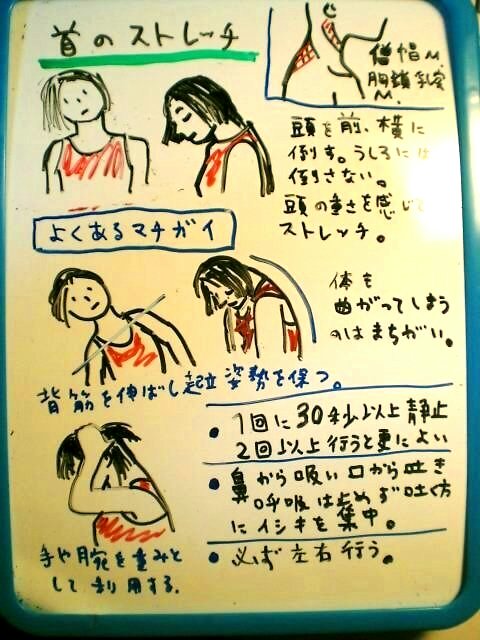 首のストレッチ
僧帽M.
胸鎖乳突
M.
頭を前、横に
倒す。うしろには
倒さない。
頭の重さを感じて
ストレッチ。
よくあるマチガイ
体を
曲がってしまう
のはまちがい。
背筋を伸ばし起立姿勢を保つ。
・1回に30秒以上静止
2回以上行うと更によい
・鼻から吸い口から吐き
呼吸は止めず吐く方
にイシキを集中。
・必ず左右行う。
手や腕を重みと
して利用する.